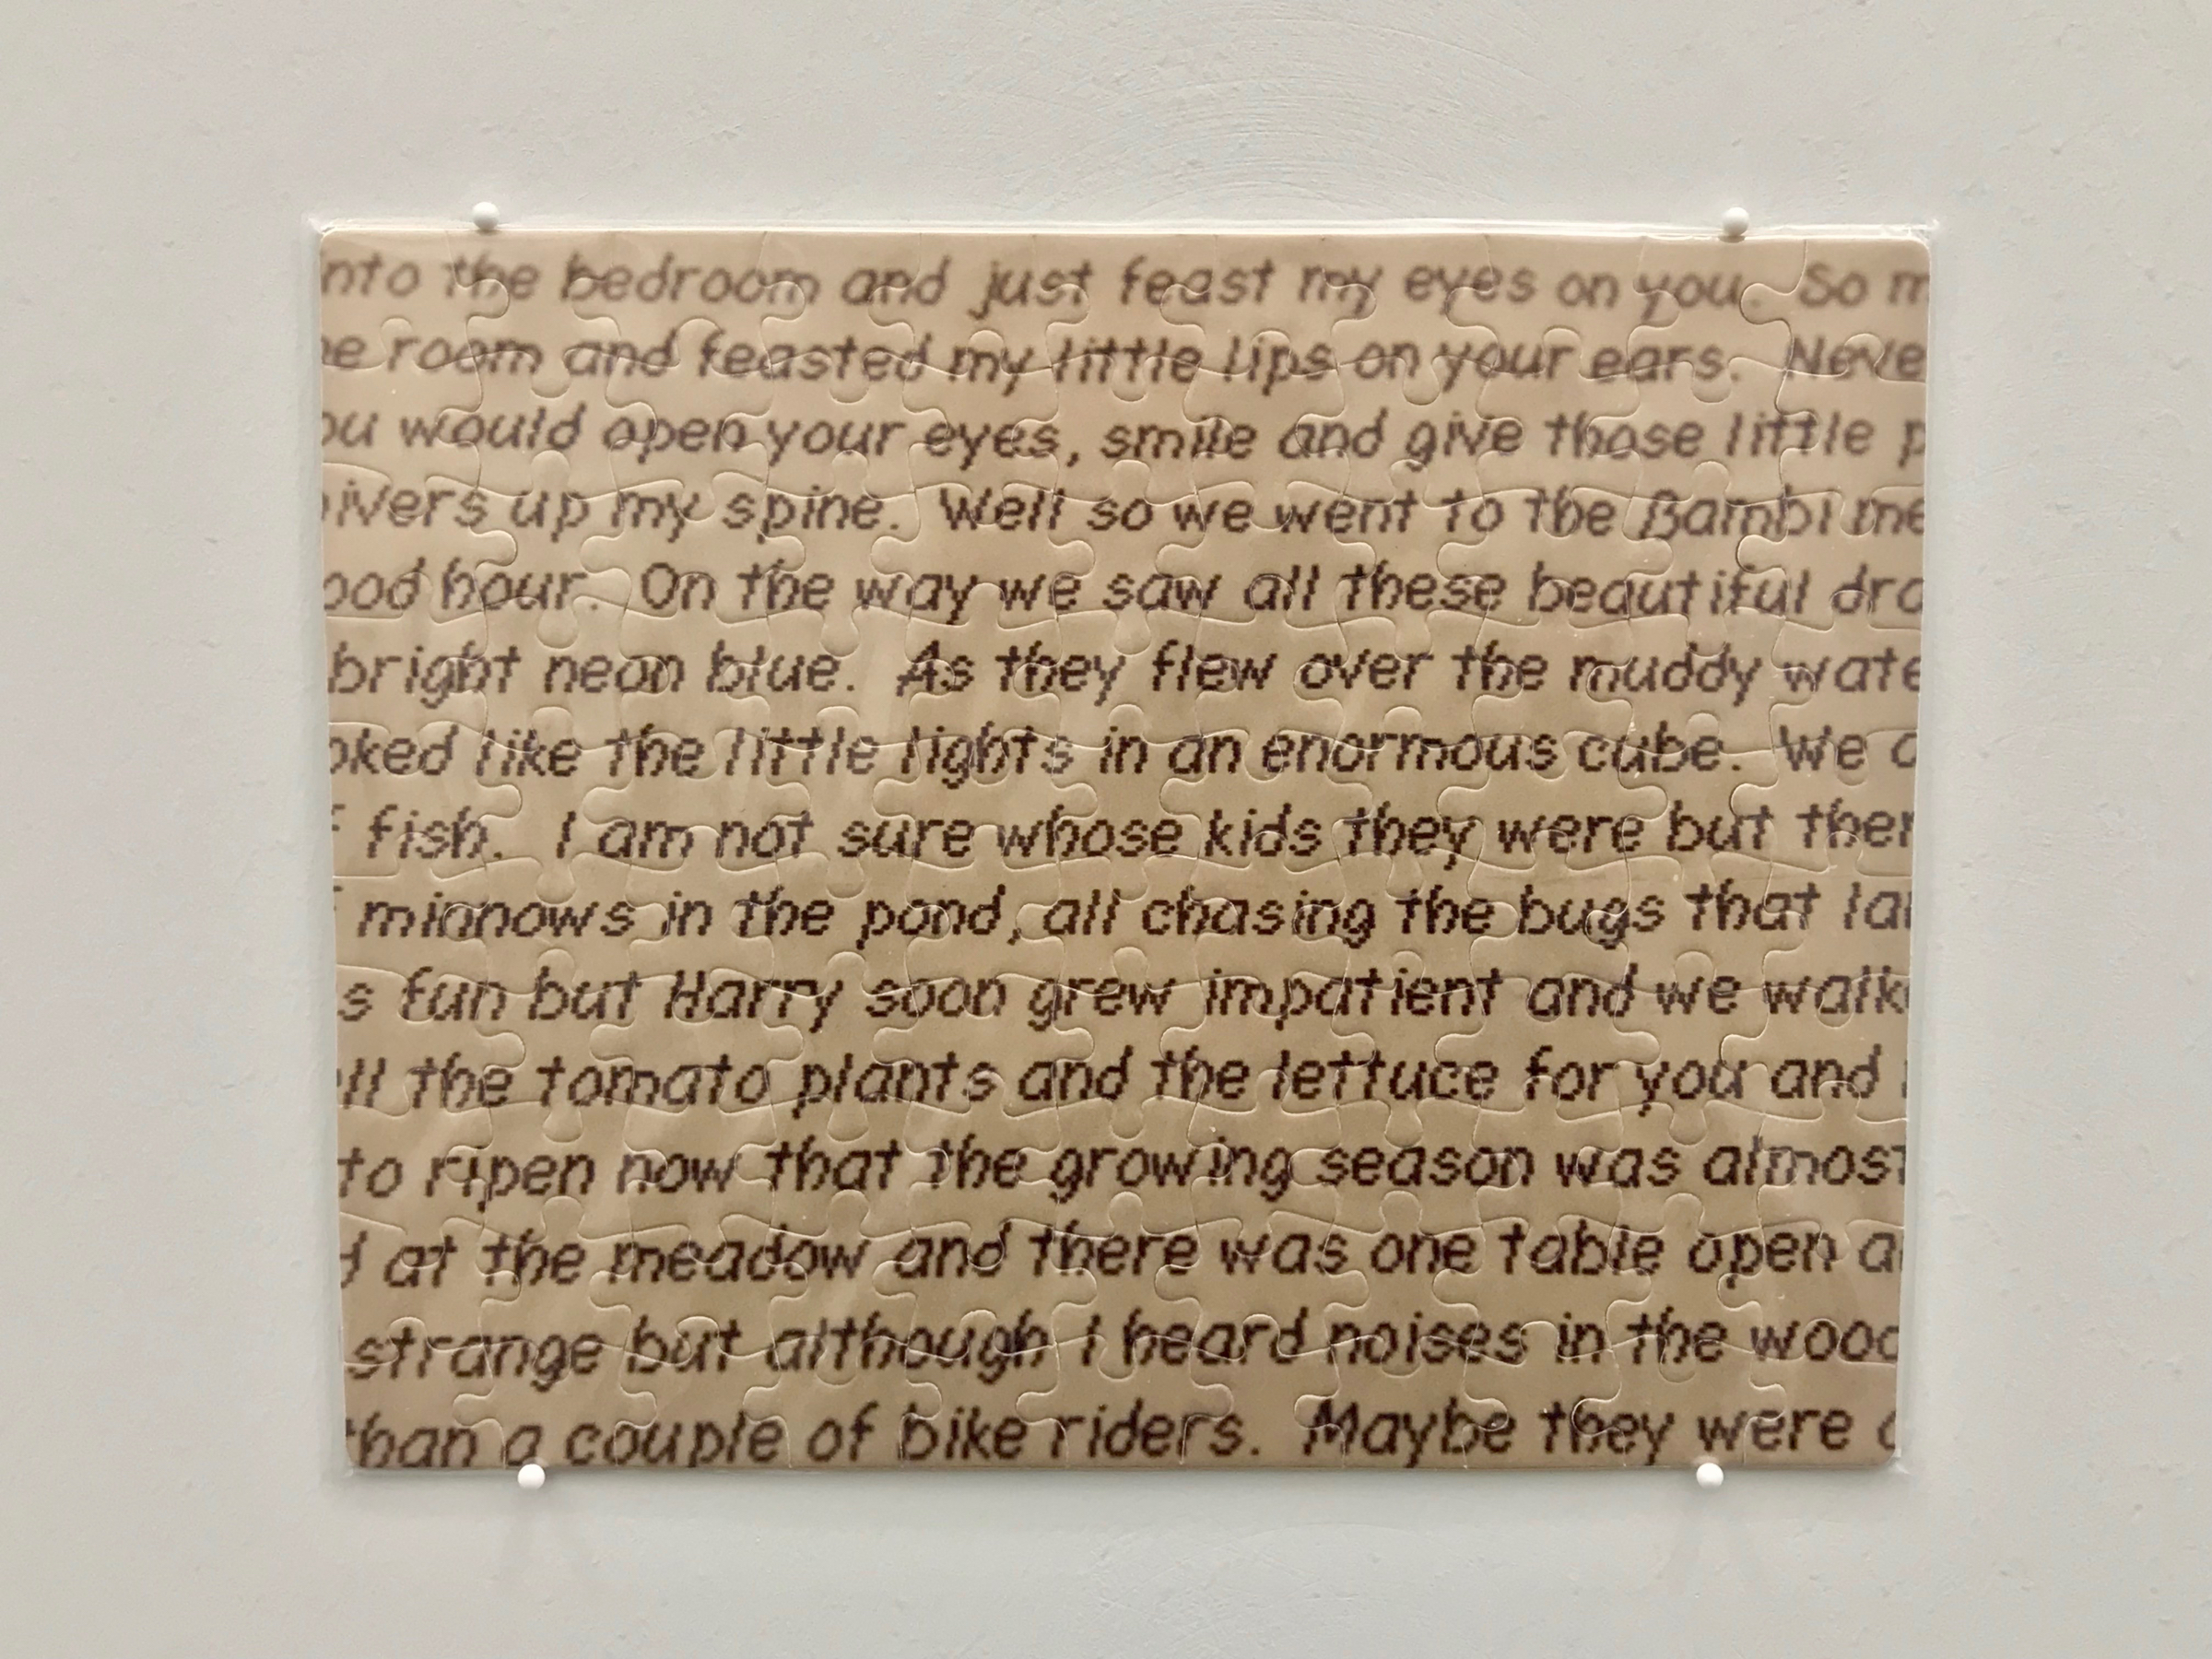 into the bedroom and just feast my eyes on you. So m
he room and feasted my little lips on your ears. Neve
ou would open your eyes, smile and give those little p
hivers up my spine. Well so we went to the Bambi me
ood hour. On the way we saw all these beautiful dra
bright neon blue. As they flew over the muddy wate
oked like the little lights in an enormous cube. We
f fish. I am not sure whose kids they were but ther
f minnows in the pond, all chasing the bugs that lan
s fun but Harry soon grew impatient and we walke
ll the tomato plants and the lettuce for you and
to ripen now that the growing season was almost
d at the meadow and there was one table open a
strange but although I heard noises in the wood
than a couple of bike riders. Maybe they were